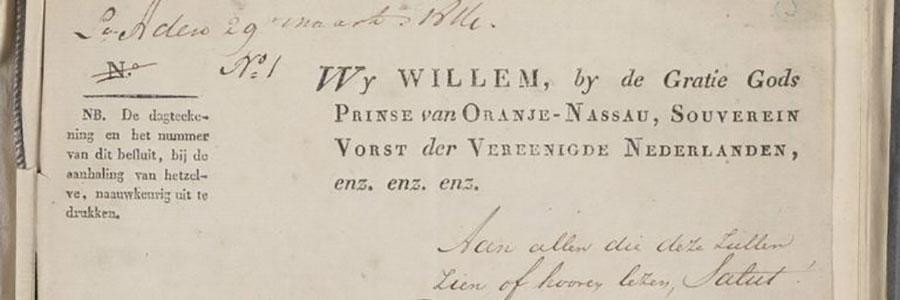 29 maart 1814.
N.o
N.o 1
Wy WILLEM, by de Gratie Gods
PRINSE van ORANJE-NASSAU, SOUVEREIN
VORST der VEREENIGDE NEDERLANDEN,
enz. enz. enz.
NB. De dagteeke-
ning en het nummer
van dit besluit, bij de
aanhaling van hetzel-
ve, naauwkeurig uit te
drukken.
Aan allen die deze zullen
zien of hooren lezen, Salut!